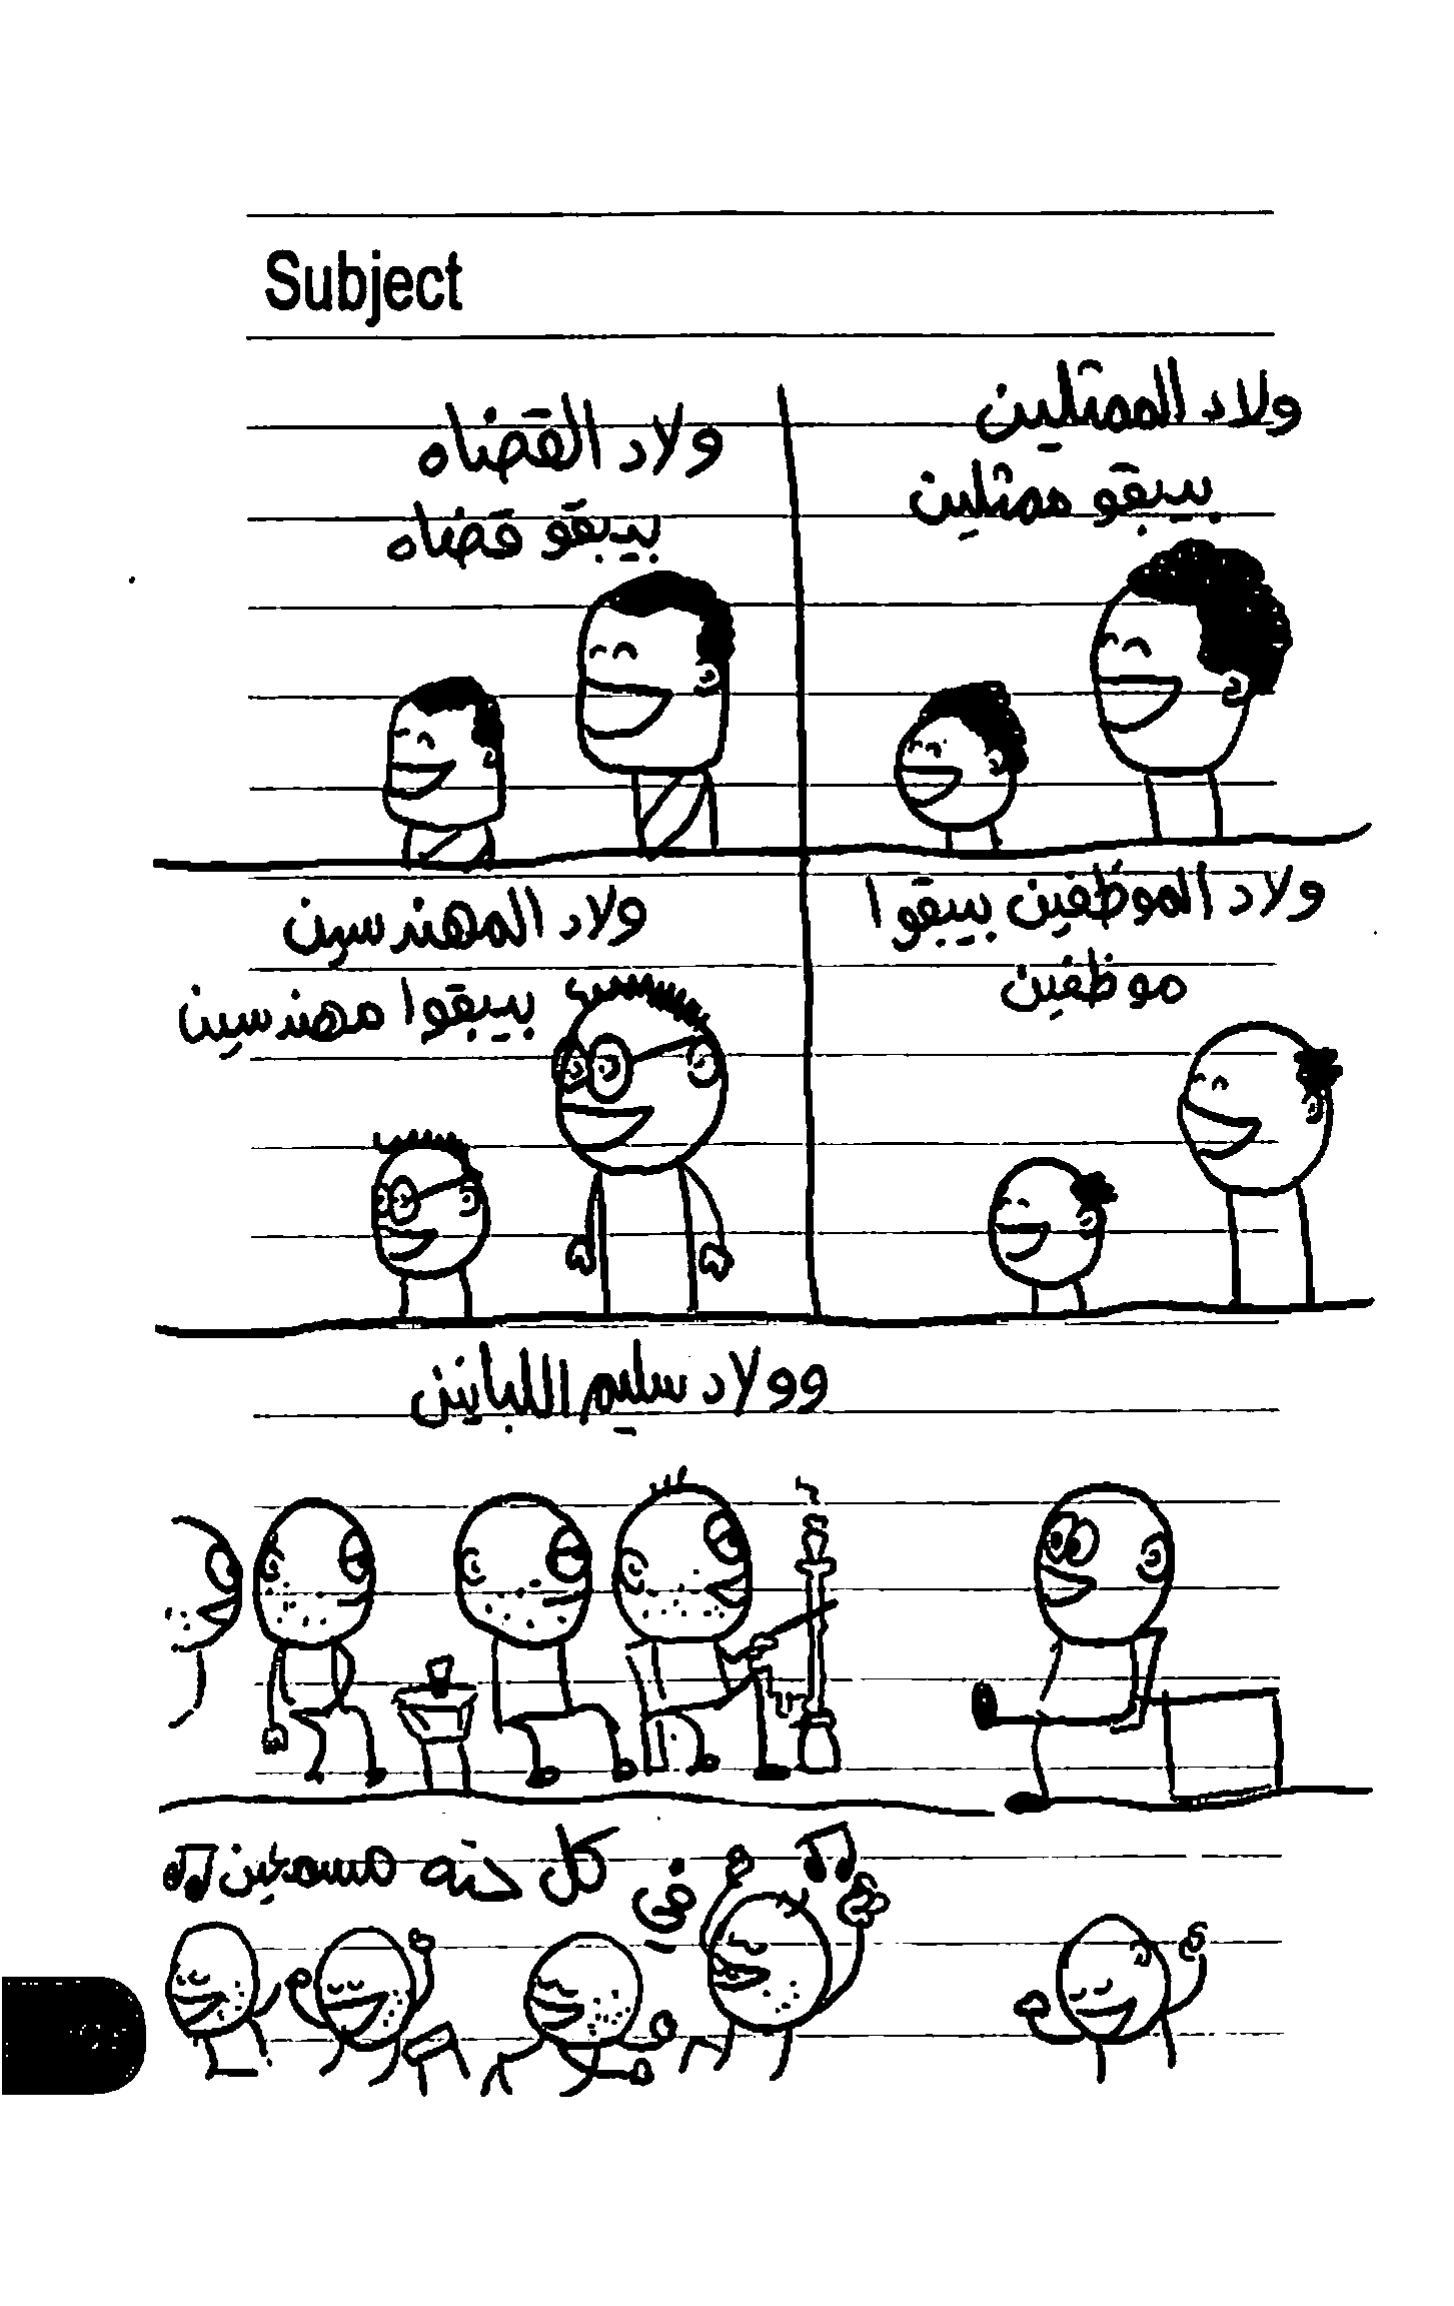 Subject
ولاد الممثلين
بيبقو ممثلين
ولاد القضاه
بيبقو قضاه
ولاد الموظفين بيبقوا
موظفين
ولاد المهندسين
بيبقوا مهندسين
وولاد سليم اللبانين
فى كل حته مسمعين